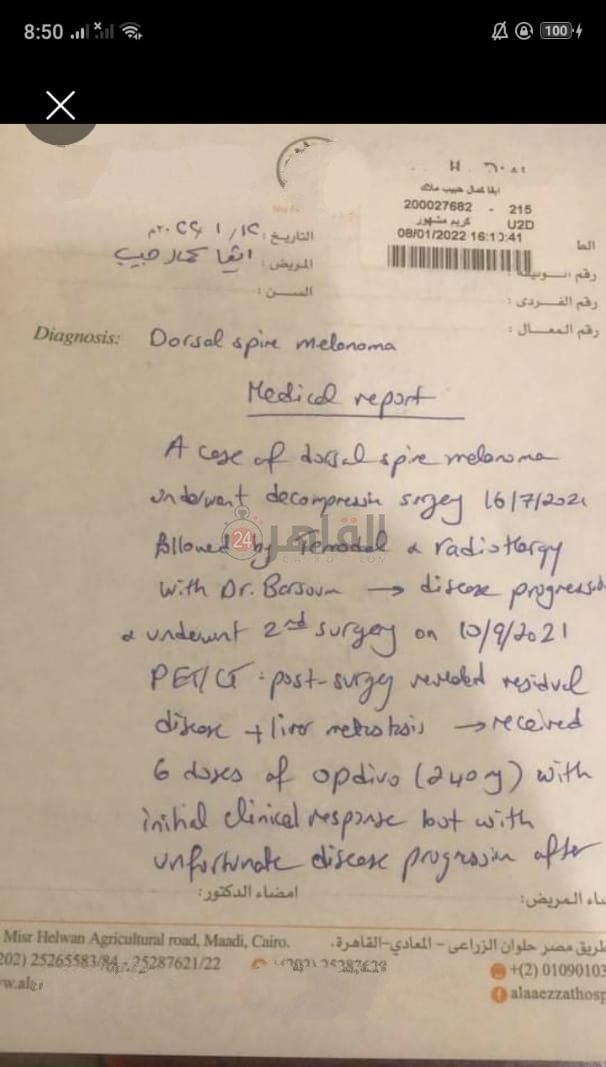 8:50
100
ايفا كمال حبيب ملاك
200027682 - 215
كريم مشهور U2D
08/01/2022 16:10:41
الط
رقم
رقم الفردى :
رقم المعال :
التاريخ :
المريض : ايفا كمال حبيب
السن :
Diagnosis: Dorsal spine melanoma
Medical report
A case of dorsal spine melanoma
underwent decompression surgery 16/7/2021
followed by Temodal & radiotherapy
with Dr. Barsoum → disease progression
& underwent 2nd surgery on 10/9/2021
PET/CT : post-surgey revealed residual
disease + liver metastasis → received
6 doses of opdivo (240 mg) with
initial clinical response but with
unfortunate disease progression after
القاهرة 24
CAIRO 24 .COM
امضاء الدكتور:
ضاء المريض:
Misr Helwan Agricultural road, Maadi, Cairo.
طريق مصر حلوان الزراعى - المعادي-القاهرة.
202) 25265583/84 - 25287621/22
+(2) 01090103
alaaezzathosp